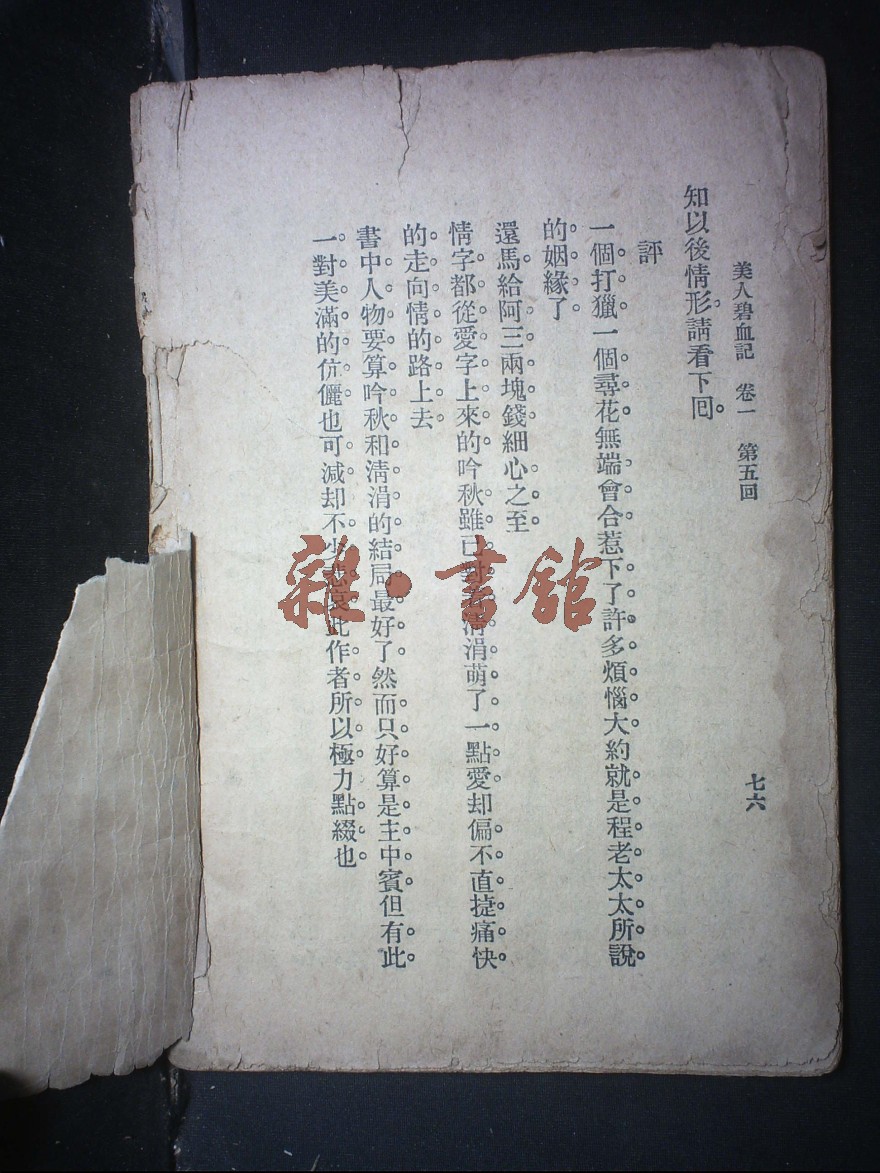 美人碧血記 卷一 第五回 七六
知以後情形請看下囘。
評
一個打獵一個尋花無端會合惹下了許多煩惱大約就是程老太太所說
的姻緣了
還馬給阿三兩塊錢細心之至
情字都從愛字上來的吟秋雖已對清涓萌了一點愛却偏不直捷痛快
的走向情的路上去
書中人物要算吟秋和淸涓的結局最好了然而只好算是主中賓但有此
一對美滿的伉儷也可減却不少悲哀此作者所以極力點綴也
雜·書館